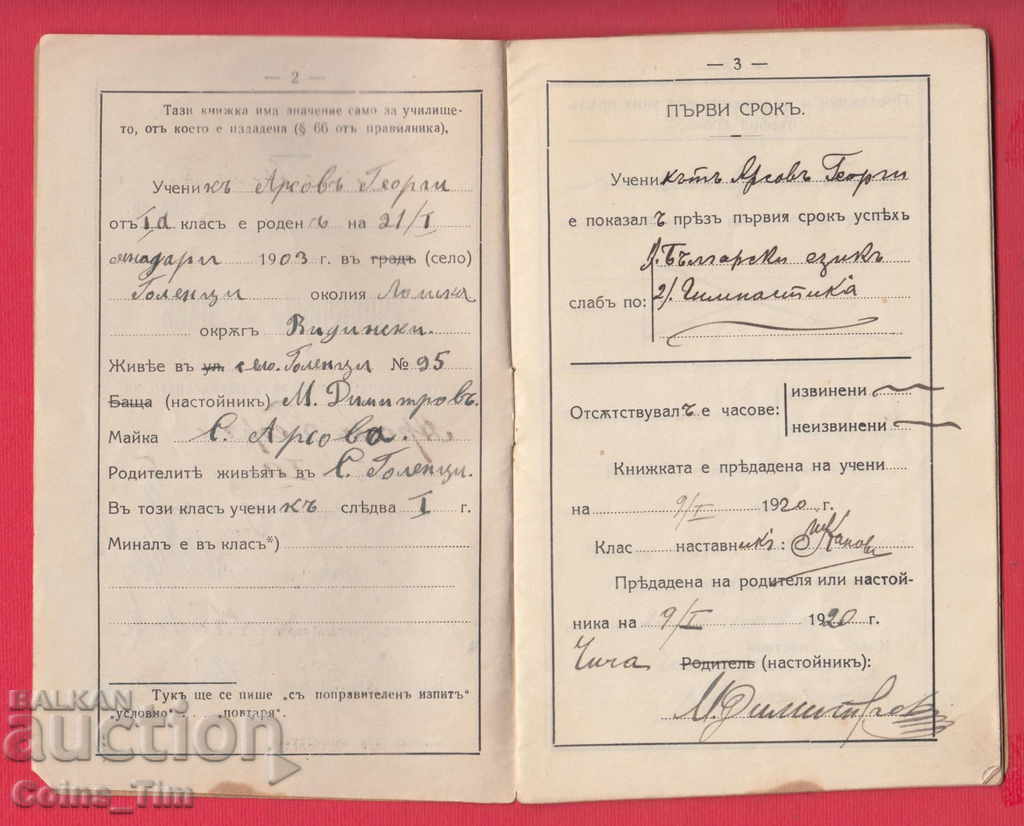 — 2 —
Тази книжка има значение само за училище-
то, отъ което е издадена (§ 66 отъ правилника).
Ученикъ Арсовъ Георги
отъ Iа класъ е роденъ на 21/I
януари 1903 г. въ градъ (село)
Голенци околия Ломска
окрѫгъ Видински.
Живѣе въ ул. село Голенци № 95
Баща (настойникъ) М. Димитровъ.
Майка С. Арсова.
Родителитѣ живѣятъ въ с. Голенци.
Въ този класъ ученикъ слѣдва I г.
Миналъ е въ класъ*)
Тукъ ще се пише „съ поправителенъ изпитъ“
„условно“ „повтаря“.
— 3 —
ПЪРВИ СРОКЪ.
Ученикътъ Арсовъ Георги
е показалъ прѣзъ първия срокъ успѣхъ
1/. Български езикъ
слабъ по: 2/. Гимнастика
Отсѫтствувалъ е часове: извинени
неизвинени
Книжката е прѣдадена на учени
на 9/I 1920 г.
Клас наставникъ:
Прѣдадена на родителя или настой-
ника на 9/I 1920 г.
Чича Родитель (настойникъ):
М. Димитровъ
BALKAN
auction
Coins_Tim